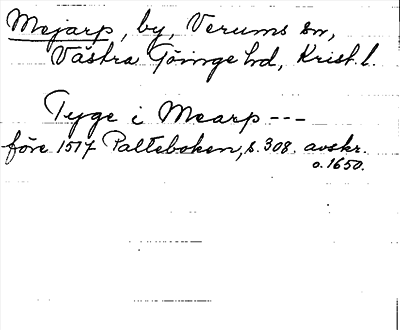 Mejarp, by, Verums sn,
Västra Göinge hd, Krist. l.
Tyge i Mearp ---
före 1517 Palteboken, s. 308. avskr.
o. 1650.